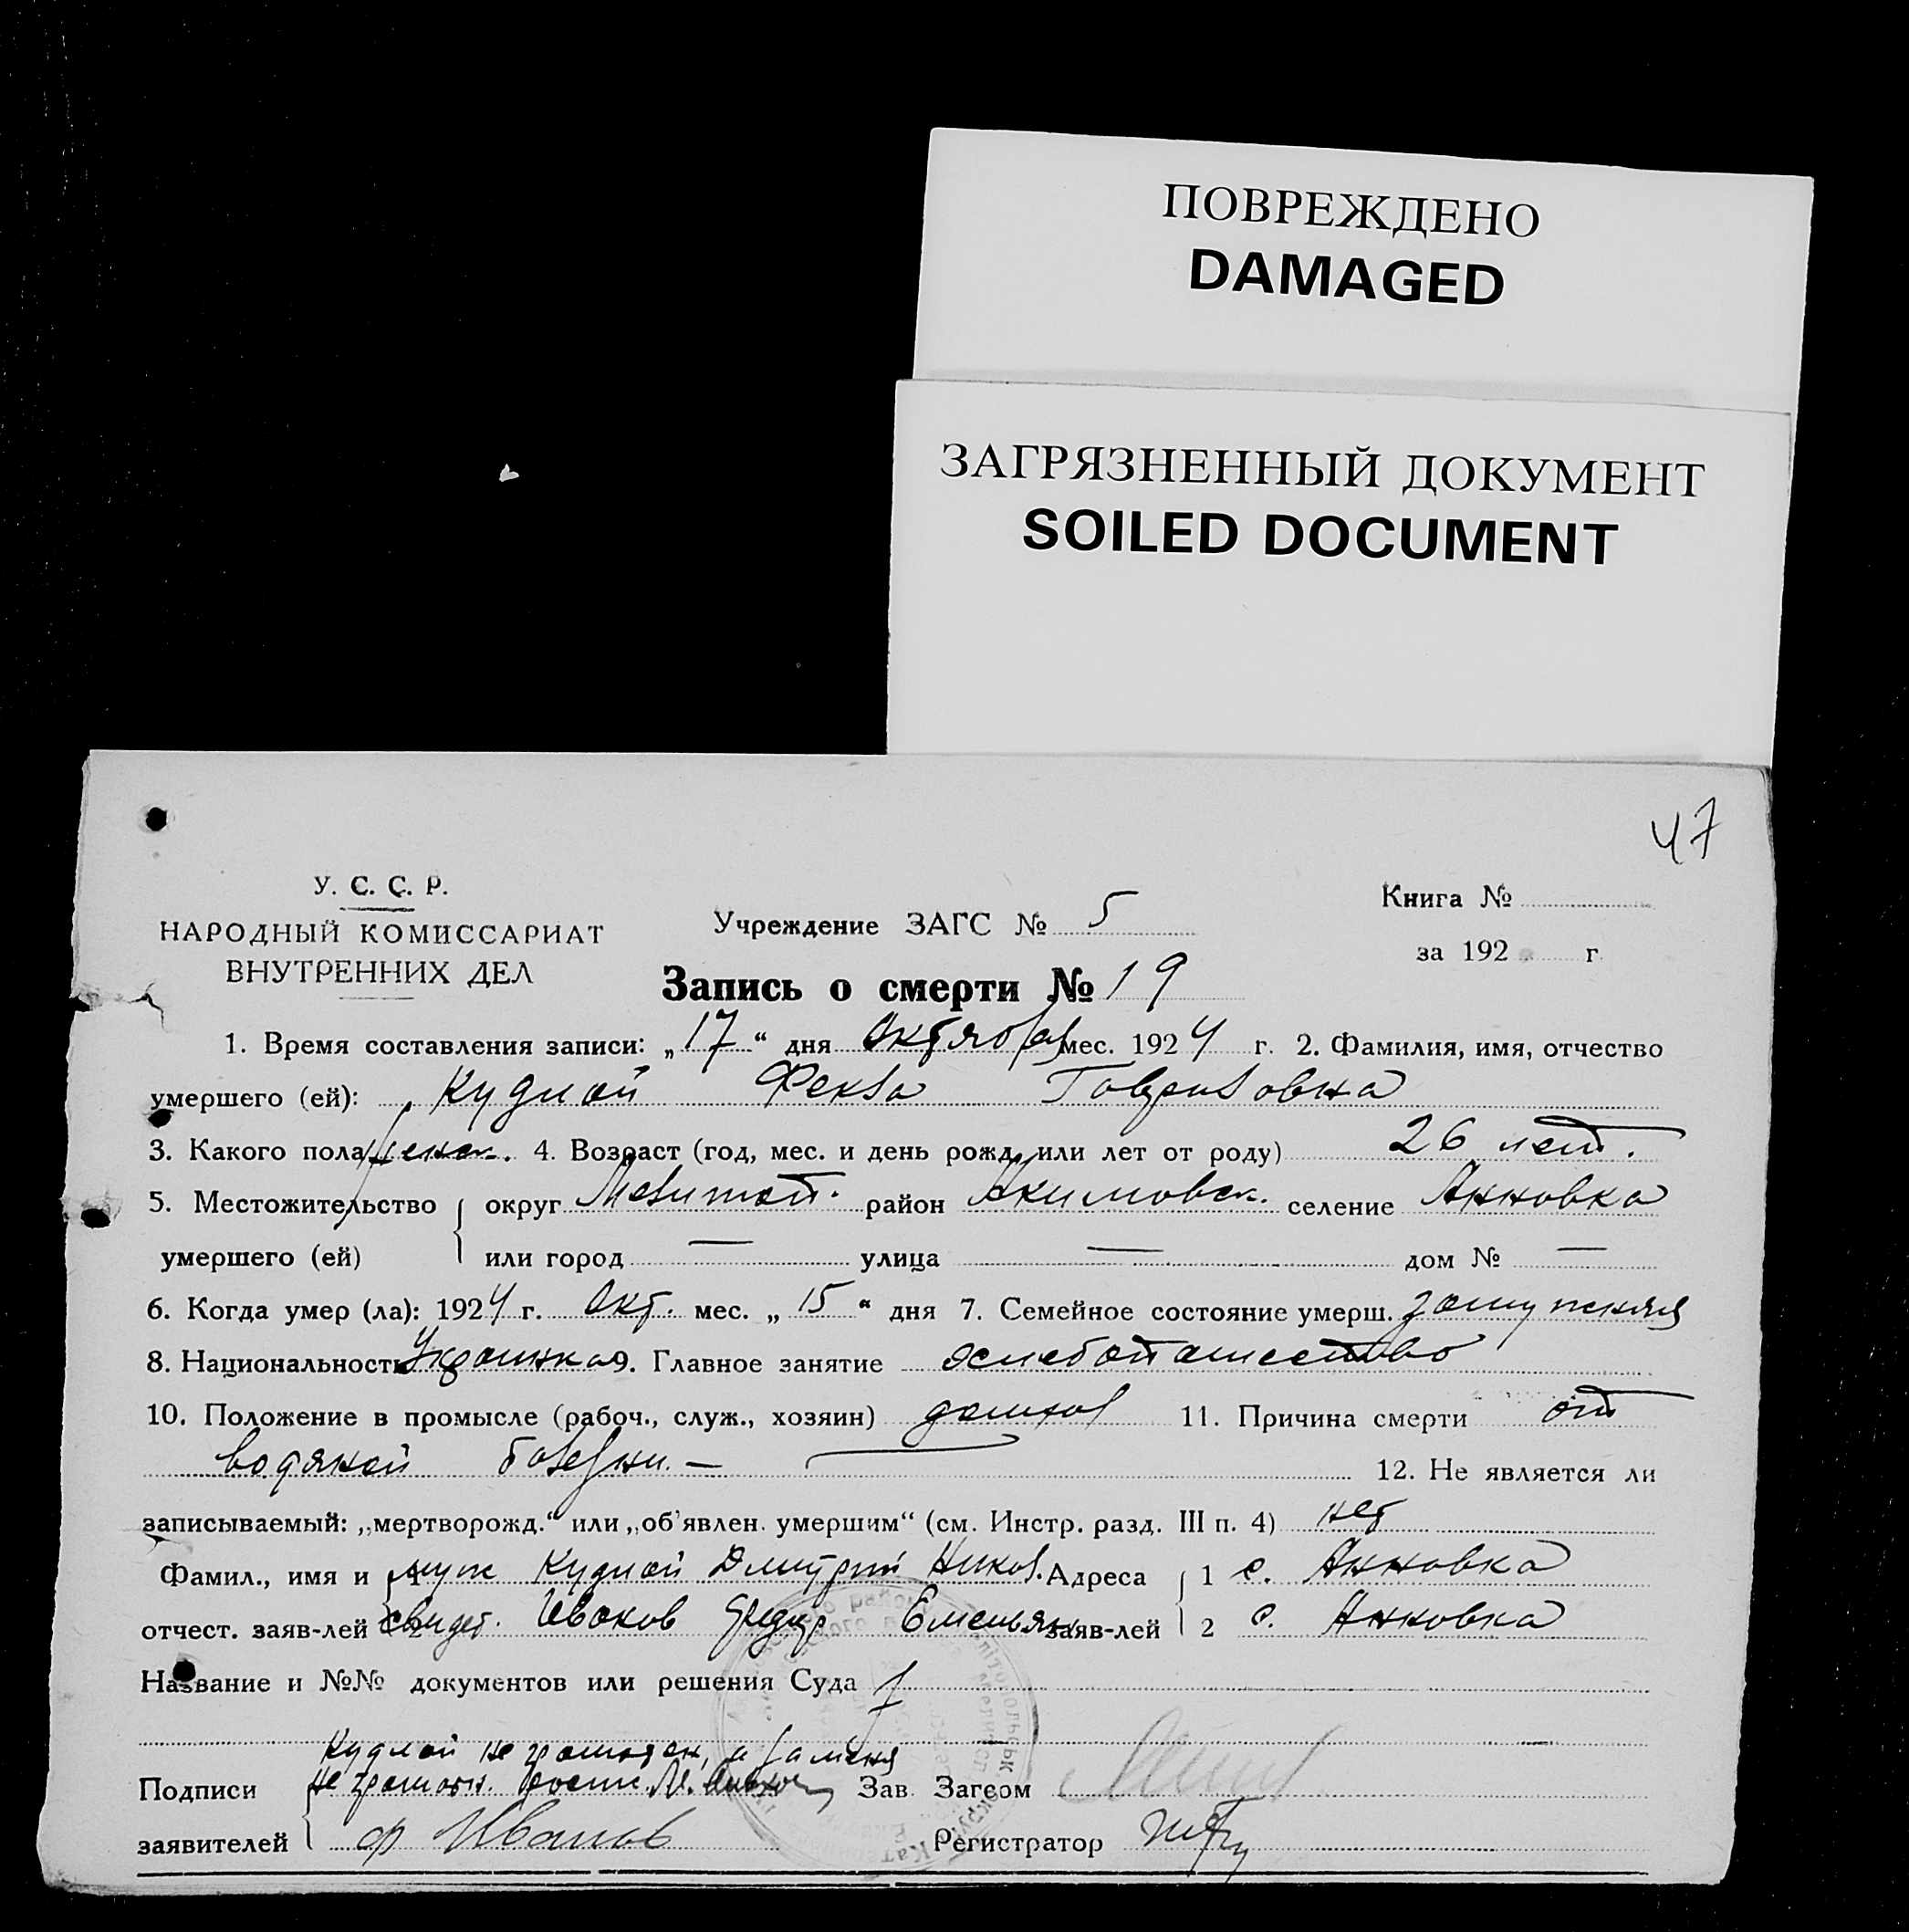 ПОВРЕЖДЕНО
DAMAGED
ЗАГРЯЗНЕННЫЙ ДОКУМЕНТ
SOILED DOCUMENT
47
У. С. С. Р.
НАРОДНЫЙ КОМИССАРИАТ
ВНУТРЕННИХ ДЕЛ
Учреждение ЗАГС № 5
Книга №
за 192 г.
Запись о смерти № 19
1. Время составления записи: „17“ дня Октября мес. 1924 г. 2. Фамилия, имя, отчество
умершего (ей): Кудлай Фекла Гавриловна
3. Какого пола женск. 4. Возраст (год, мес. и день рожд. или лет от роду) 26 лет.
5. Местожительство округ Мелитоп. район Акимовск. селение Анновка
умершего (ей) или город — улица — дом № —
6. Когда умер (ла): 1924 г. Окт. мес. „15“ дня 7. Семейное состояние умерш. замужняя
8. Национальность Украинка 9. Главное занятие хлебопашество
10. Положение в промысле (рабоч., служ., хозяин) 11. Причина смерти от
водяной болезни. —
12. Не является ли
записываемый: „мертворожд.“ или „об'явлен. умершим“ (см. Инстр. разд. III п. 4) нет
Фамил., имя и 1 муж Кудлай Дмитрий Никол. Адреса 1 с. Анновка
отчест. заяв-лей 2 свидет. Иванов Федор Емельян заяв-лей 2 с. Анновка
Название и №№ документов или решения Суда
Кудлай не грамотен, а за меня
Подписи не грамотн. Зав. Загсом
заявителей Ф Иванов Регистратор